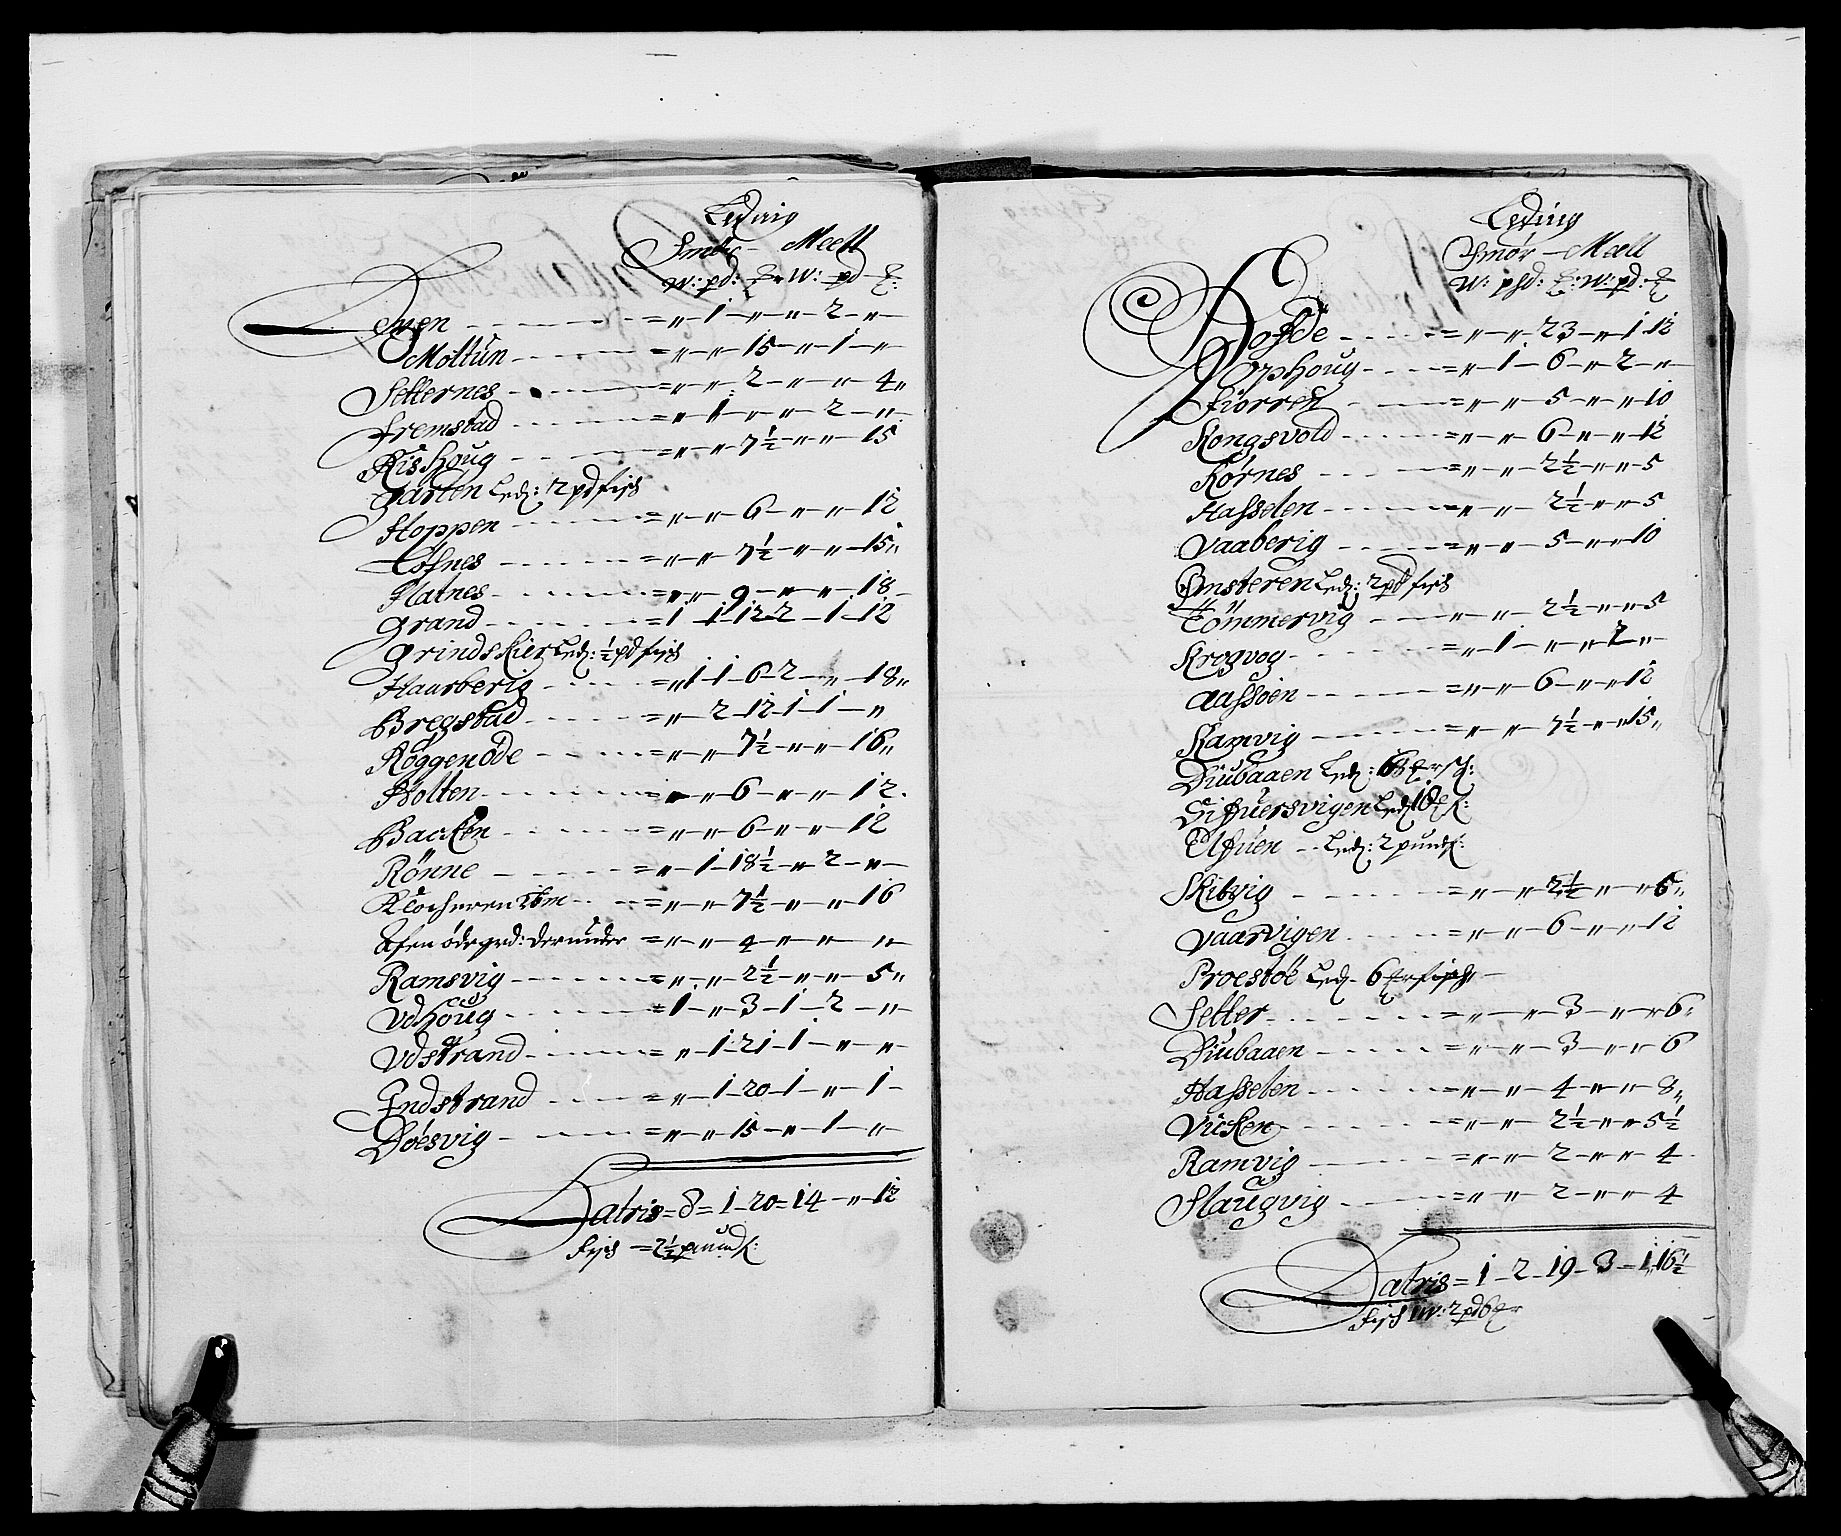 Leding
Smör - Meell
W: pd: Er W: pd Er:
Sven - - - = „ - 1 - „ - „ - 2 - „
Moltün - - - = „ - „ - 15 - „ - 1 - „
Setternes - - - = „ - „ - 2 - „ - „ - 4 „
Fremstad - - - = „ - 1 - „ - „ - 2 - „
Rishoug - - - = „ - „ - 7½ - „ - „ - 15
Garten Led: 2 pd fisch
Hoppen - - - = „ - „ - 6 - „ - „ - 12
Lofnes - - - = „ - „ - 7½ - „ - „ - 15 „
Flatnes - - - = „ - „ - 9 - „ - „ - 18
Grand - - - = 1 - 1 - 12 - 2 - 1 - 12
Grindskier Led: ½ pd fisch
Haarberig - - - = „ 1 - 1 - 6 - 2 - „ - 18 „
Bregstad - - - = „ - 2 - 12 - 1 - 1 - „
Röggenöde - - - = „ - „ - 7½ - „ - „ - 16 „
Holten - - - = „ - „ - 6 - „ - „ - 12
Backen - - - = „ - „ - 6 - „ - „ - 12
Rönne - - - = „ - 1 - 18½ - „ - 2 - „
Klocheren - - - = „ - „ - 7½ - „ - „ - 16
Afen ödegrd: derunder = „ - „ - 4 - „ - „ - „
Ramsvig - - - = „ - „ - 2½ - „ - „ - 5 „
Vdhoug - - - = 1 - „ - 3 - 1 - 2 - „
Vdstrand - - - = „ - 1 - 21 - 1 - „ - „
Indstrand - - - = „ - 1 - 20 - 1 - „ - 1
Döesvig - - - = „ - „ - 15 - „ - 1 - „
Latris = 8 = 1 - 20 - 14 - „ - 12
Fisch = 2½ pund:
Leding
Smör - Meell
W: pd: Er: W: pd: Er
Hofde - - - = „ - „ - 23 - „ - 1 - 12
Ophoug - - - = „ - 1 - 6 - „ - 2 - „
Fiorren - - - = „ - „ - 5 - „ - „ - 10
Kongsvold - - - = „ - „ - 6 - „ - „ - 12
Körnes - - - = „ - „ - 2½ - „ - „ - 5
Hasselen - - - = „ - „ - 2½ - „ - „ - 5
Vaaberig - - - = „ - „ - 5 - „ - „ - 10
Imsteren Led: 2 pd fisch
Tömmervig - - - = „ - „ - 2½ - „ - „ - 5
Krogvog - - - = „ - 1 - „ - „ - 2 - „
Aassöen - - - = „ - „ - 6 - „ - „ - 12
Kamvig - - - = „ - „ - 7½ - „ - „ - 15 „
Diubaaen Led: 6 Er
Sifuersvigen Led:
Elfuen - Led: 2 pund
Skibvig - - - = „ - „ - 2½ - „ - „ - 6 „
Vaarvigen - - - = „ - „ - 6 - „ - „ - 12
Proestöe Led - 6 Er fisch
Setter - - - = „ - „ - 3 - „ - „ 6 „
Diubaaen - - - = „ - „ - 3 - „ - „ 6
Hasselen - - - = „ - „ - 4 - „ - „ - 8 „
Vicken - - - = „ - „ - 2½ - „ - „ 5½
Ramvig - - - = „ - „ - 2 - „ - „ - 4
Slaugvig - - - = „ - „ - 2 - „ - „ - 4
Latris = 1 - 2 - 19 - 3 - 1 - 16½
Fisch 1 W: 2 pd 6 Er